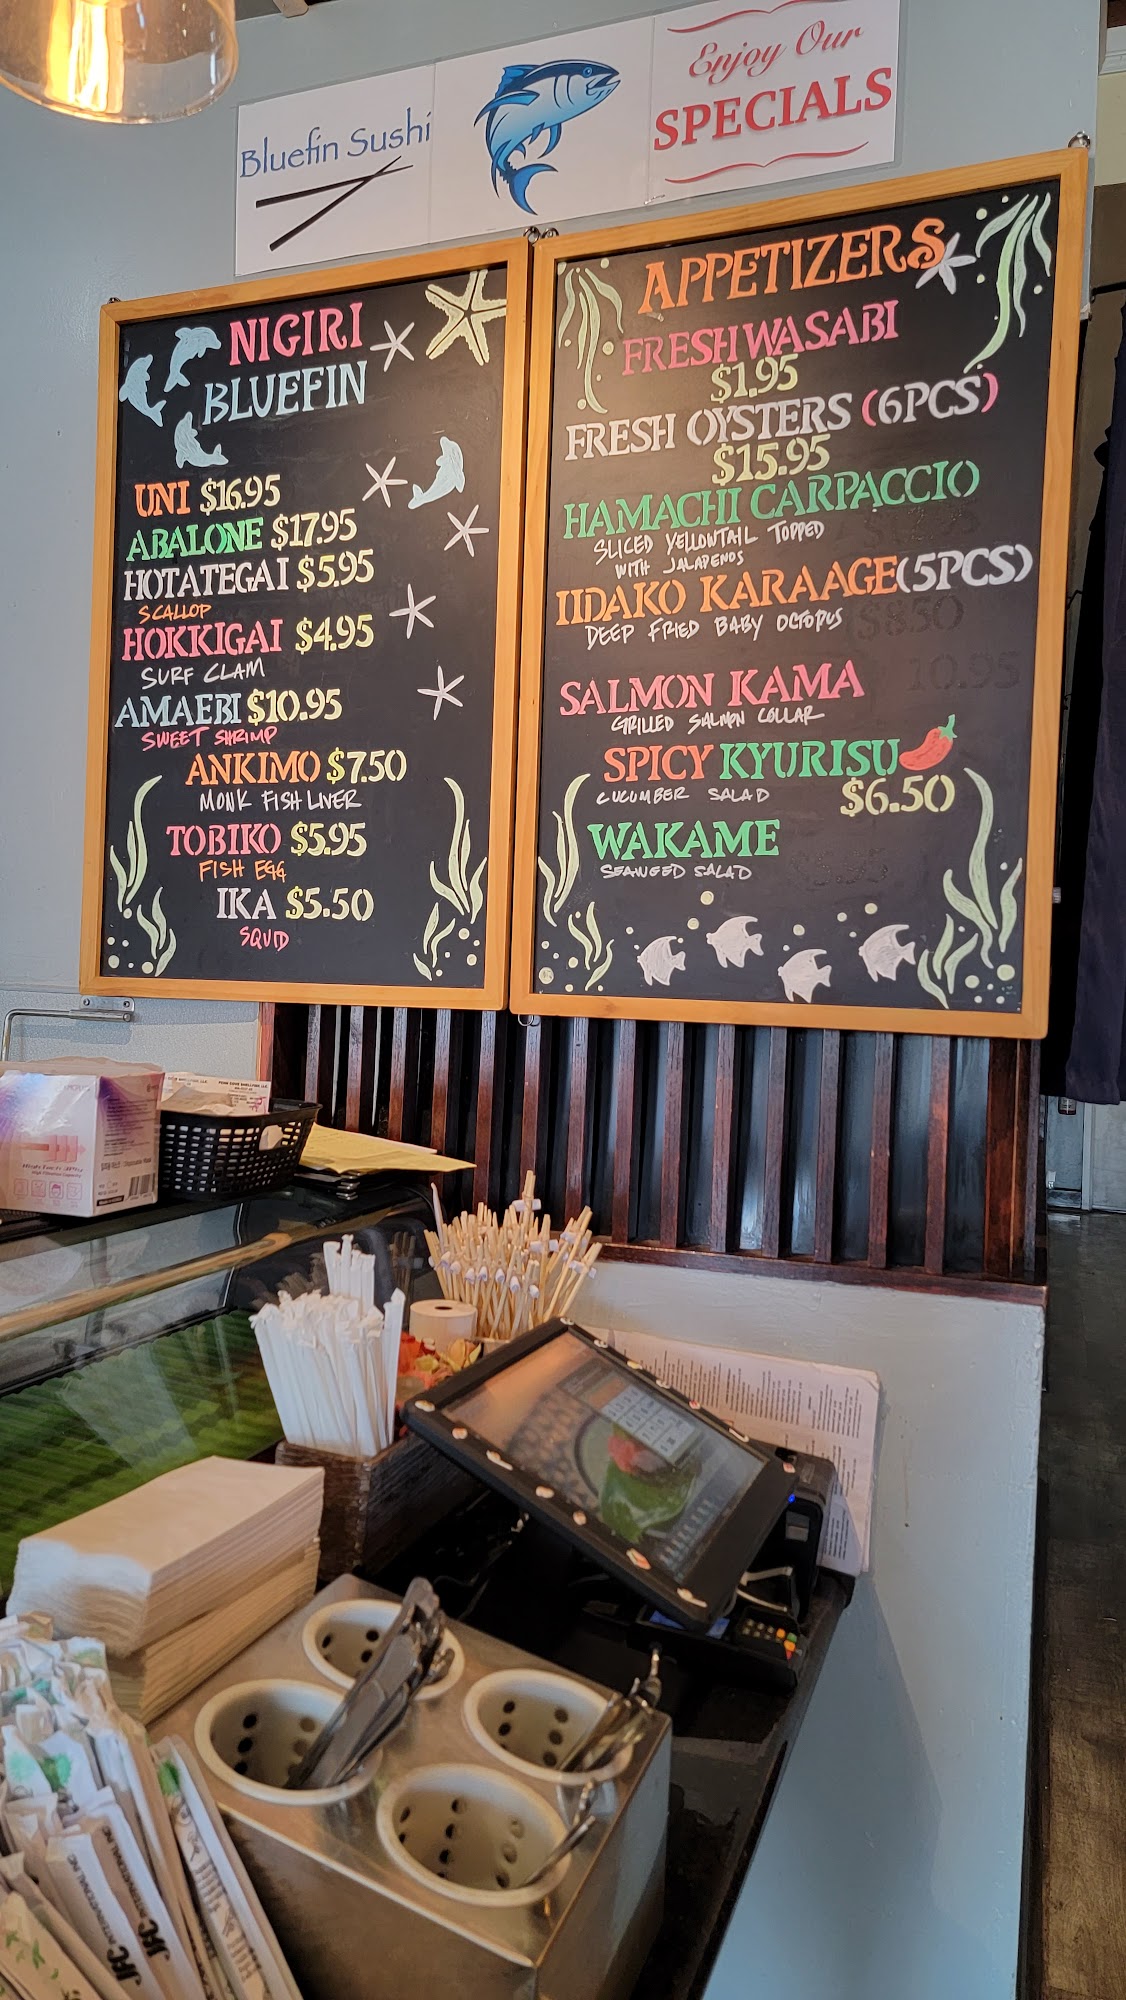 Bluefin Sushi
Enjoy Our
SPECIALS
NIGIRI
BLUEFIN
UNI $16.95
ABALONE $17.95
HOTATEGAI $5.95
SCALLOP
HOKKIGAI $4.95
SURF CLAM
AMAEBI $10.95
SWEET SHRIMP
ANKIMO $7.50
MONK FISH LIVER
TOBIKO $5.95
FISH EGG
IKA $5.50
SQUID
APPETIZERS
FRESH WASABI
$1.95
FRESH OYSTERS (6PCS)
$15.95
HAMACHI CARPACCIO
SLICED YELLOWTAIL TOPPED
WITH JALAPENOS
IIDAKO KARAAGE (5PCS)
DEEP FRIED BABY OCTOPUS
$8.50
10.95
SALMON KAMA
GRILLED SALMON COLLAR
SPICY KYURISU
CUCUMBER SALAD $6.50
WAKAME
SEAWEED SALAD
JFC INTERNATIONAL INC
JFC